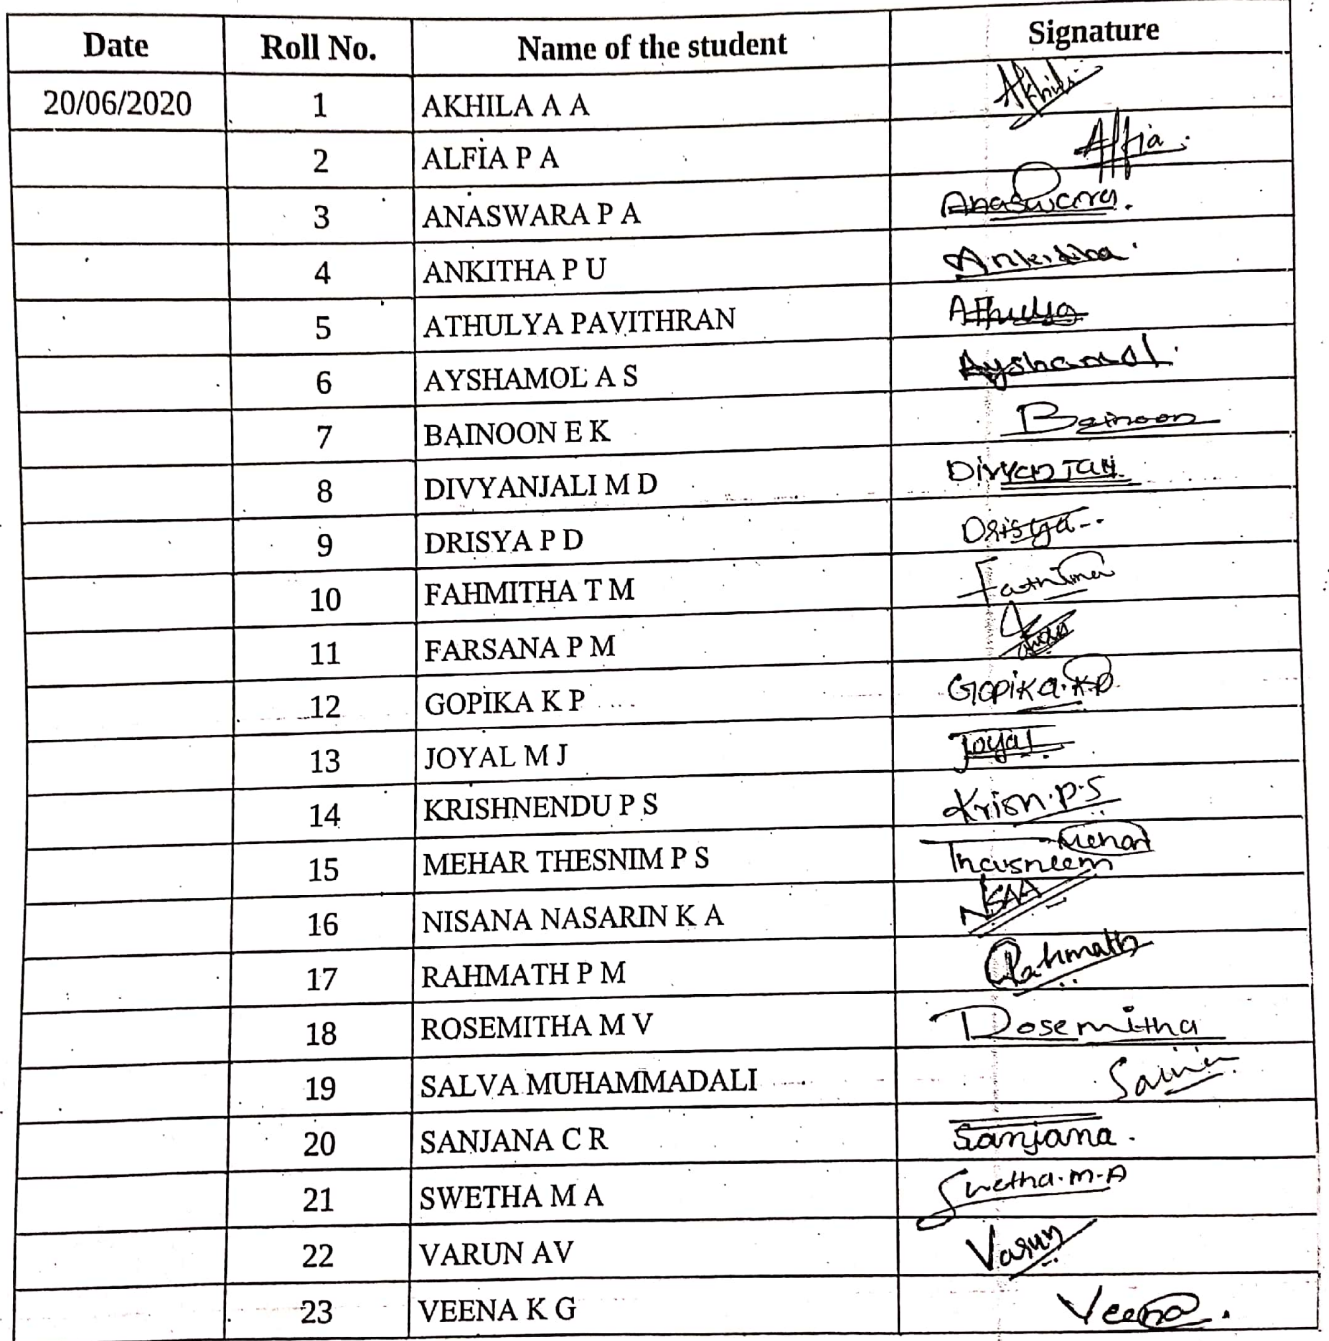 Date Roll No. Name of the student Signature
20/06/2020 1 AKHILA A A Akhila
2 ALFIA P A Alfia.
3 ANASWARA P A Anaswara.
4 ANKITHA P U Ankitha.
5 ATHULYA PAVITHRAN Athulya
6 AYSHAMOL A S Ayshamol.
7 BAINOON E K Bainoon
8 DIVYANJALI M D
9 DRISYA P D Drisya
10 FAHMITHA T M Fathima
11 FARSANA P M
12 GOPIKA K P Gopika.K.P
13 JOYAL M J Joyal
14 KRISHNENDU P S Krish.P.S
15 MEHAR THESNIM P S Thausneem Mehar
16 NISANA NASARIN K A
17 RAHMATH P M Rahmath
18 ROSEMITHA M V Rosemitha
19 SALVA MUHAMMADALI
20 SANJANA C R Sanjana.
21 SWETHA M A Swetha.M.A
22 VARUN AV Varun
23 VEENA K G Veena.